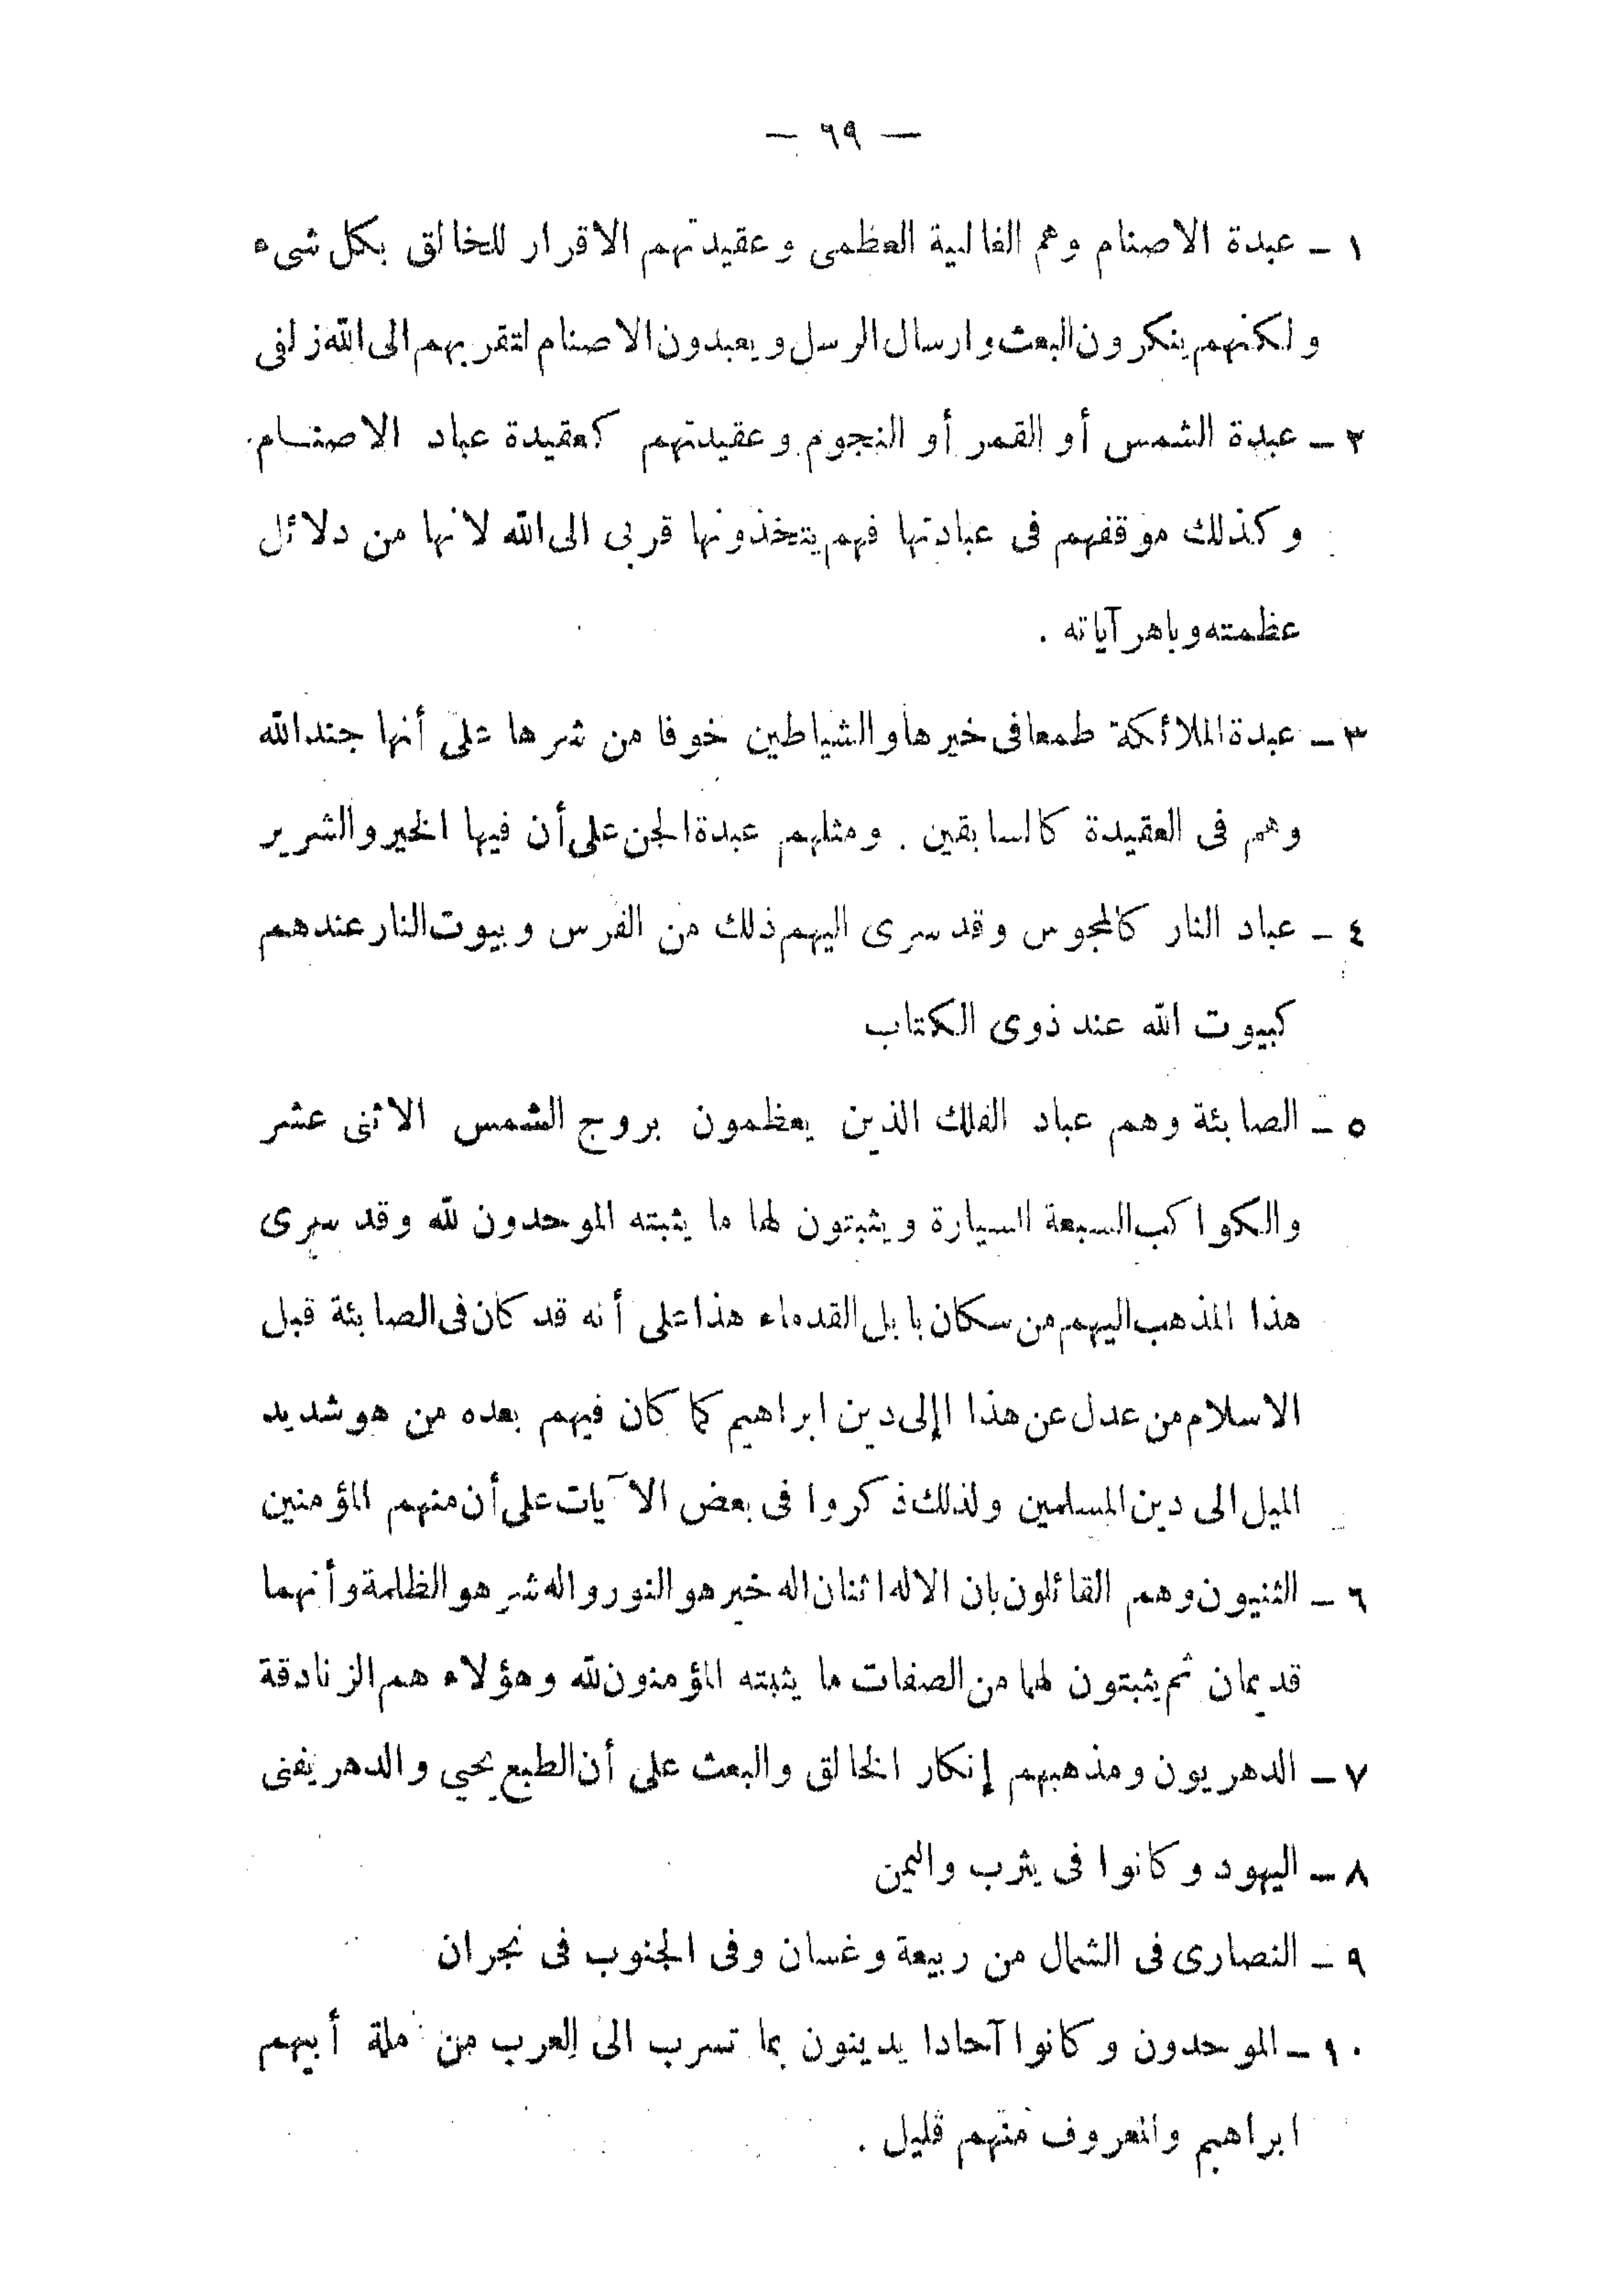 — ٦٩ —
١ – عبدة الاصنام وهم الغالبية العظمى وعقيدتهم الاقرار للخالق بكل شىء
ولكنهم ينكرون البعث وارسال الرسل ويعبدون الاصنام لتقربهم الى الله زلفى
٢ – عبدة الشمس أو القمر أو النجوم وعقيدتهم كعقيدة عباد الاصنام
وكذلك موقفهم فى عبادتها فهم يتخذونها قربى الى الله لانها من دلائل
عظمته وباهر آياته .
٣ – عبدة الملائكة طمعا فى خيرها والشياطين خوفا من شرها على أنها جند الله
وهم فى العقيدة كالسابقين . ومثلهم عبدة الجن على أن فيها الخير والشرير
٤ – عباد النار كالمجوس وقد سرى اليهم ذلك من الفرس وبيوت النار عندهم
كبيوت الله عند ذوى الكتاب
٥ – الصابئة وهم عباد الفلك الذين يعظمون بروج الشمس الاثنى عشر
والكواكب السبعة السيارة ويثبتون لها ما يثبته الموحدون لله وقد سرى
هذا المذهب اليهم من سكان بابل القدماء هذا على أنه قد كان فى الصابئة قبل
الاسلام من عدل عن هذا إلى دين ابراهيم كما كان فيهم بعده من هو شديد
الميل الى دين المسلمين ولذلك ذكروا فى بعض الآيات على أن منهم المؤمنين
٦ – الثنيون وهم القائلون بان الاله اثنان اله خير هو النور واله شر هو الظلمة وأنهما
قديمان ثم يثبتون لهما من الصفات ما يثبته المؤمنون لله وهؤلاء هم الزنادقة
٧ – الدهريون ومذهبهم إنكار الخالق والبعث على أن الطبع يحيي والدهر يفنى
٨ – اليهود وكانوا فى يثرب واليمن
٩ – النصارى فى الشمال من ربيعة وغسان وفى الجنوب فى نجران
١٠ – الموحدون وكانوا آحادا يدينون بما تسرب الى العرب من ملة أبيهم
ابراهيم والمعروف منهم قليل .